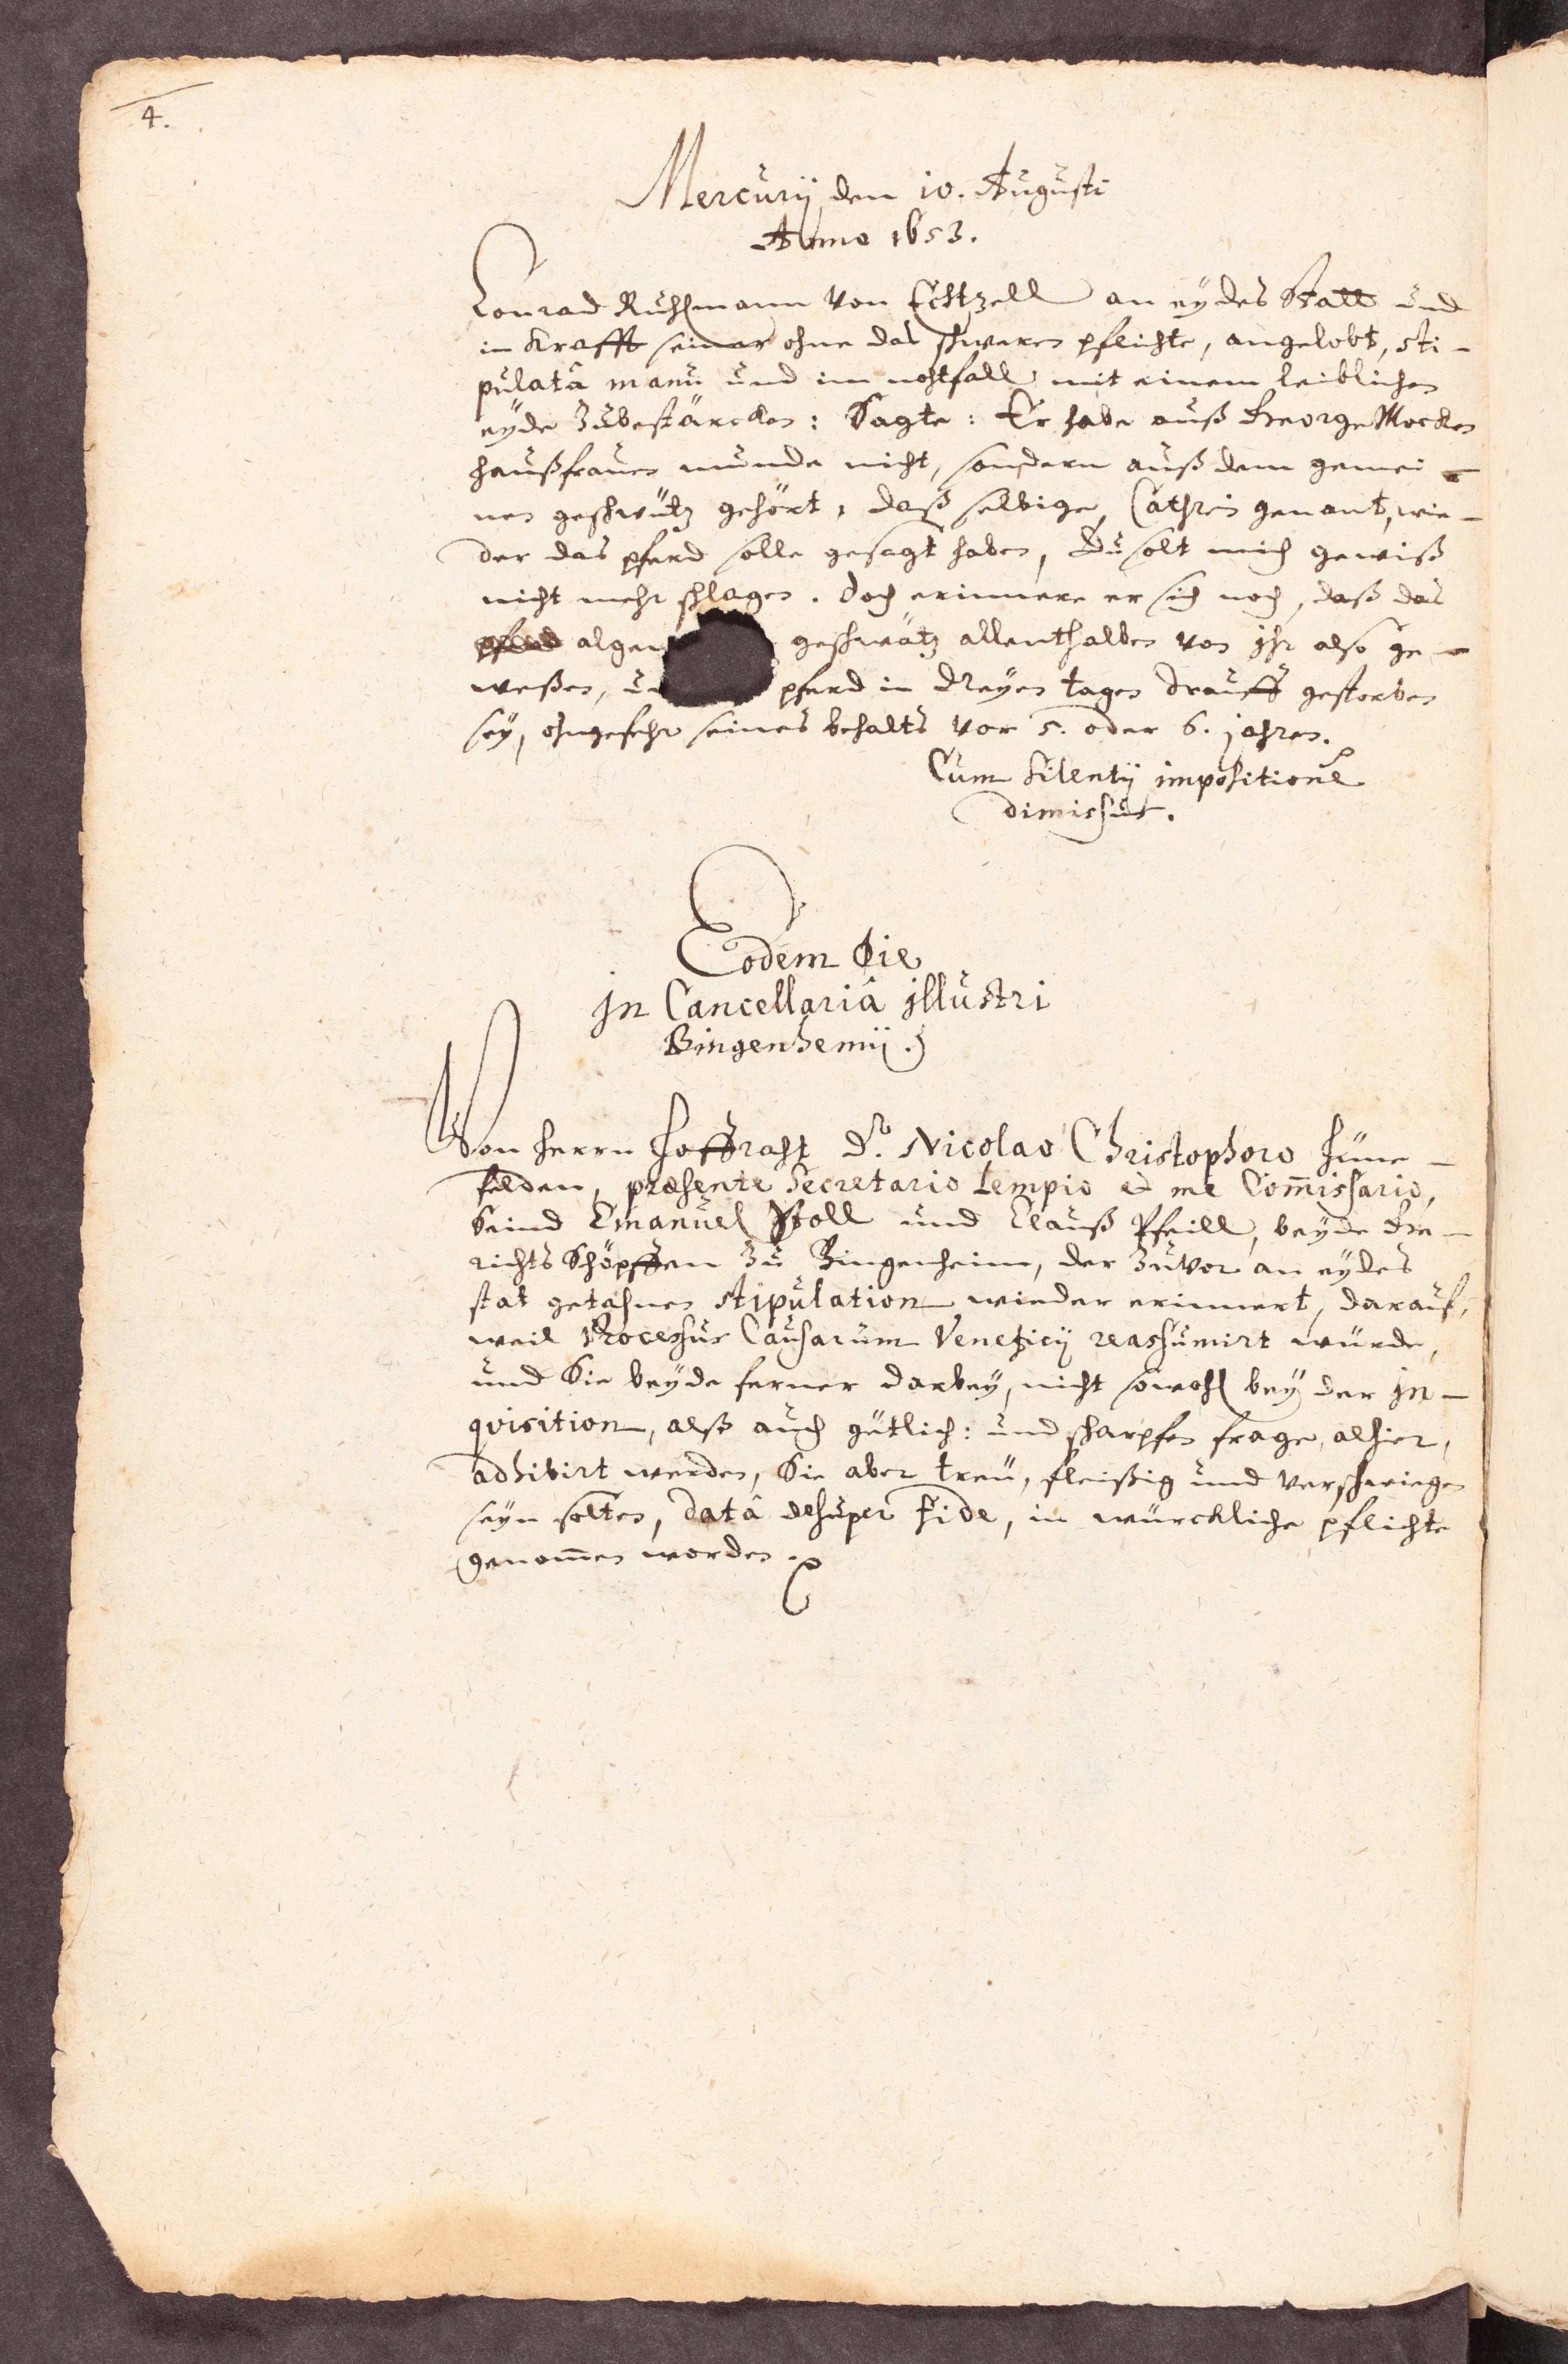 4.
Mercurij, den 10. Augusti
Anno 1653.
Conrad Ruhlmann von Echtzell an eydes statt und
in krafft seiner ohne das schweren pflichte, angelobt, sti-
pulatâ manu und im nohtfall mit einem leiblichen
eyde zubestärcken: Sagte: Er habe auß George Mocken
haußfrauen munde nicht, sondern auß dem gemei-
nen geschwätz gehört, daß selbige, Cathrin genant, wie-
der das pferd solle gesagt haben, Du solt mich gewiß
nicht mehr schlagen. Doch erinnere er sich noch, daß das
algem geschwätz allenthalben von ihr also ge-
weßen, u pferd in dreyen tagen drauff gestorben
sey, ohngefehr seines behalts vor 5. oder 6. jahren.
Cum silentij impositione
dimissus.
Eodem die
in Cancellariâ illustri
Bingenhemij.
Von Herrn Hoffraht Dr. Nicolao Christophoro Hüne-
felden, præsente Secretario Lempio et me Com̄issario,
seind Emanuel Stoll und Clauß Pfeill, beyde Ge-
richts Schöpffen zu Bingenheim, der zuvor an eydes
stat getahnen stipulation wieder erinnert, darauf,
weil Processus Causarum Veneficij reassumirt würde,
und Sie beyde ferner darbey, nicht sowohl bey der in-
qvisition, alß auch gütlich: und scharpfen frage, alhier,
adhibirt werden, Sie aber treu, fleißig und verschwiegen
seyn solten, datâ desuper fide, in würckliche pflichte
genom̄en worden.